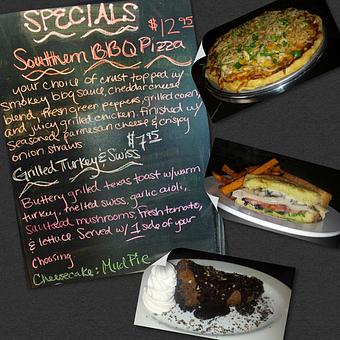 SPECIALS
$12.95
Southern BBQ Pizza
your choice of crust topped w/
smokey bbq sauce, cheddar cheese
blend, fresh green peppers, grilled corn,
and juicy grilled chicken. finished w/
seasoned parmesan cheese & crispy
onion straws
$7.95
Grilled Turkey & Swiss
Buttery grilled texas toast w/warm
turkey, melted swiss, garlic aioli,
sauteed mushrooms, fresh tomato,
& lettuce. Served w/ 1 side of your
choosing
Cheesecake: Mud Pie